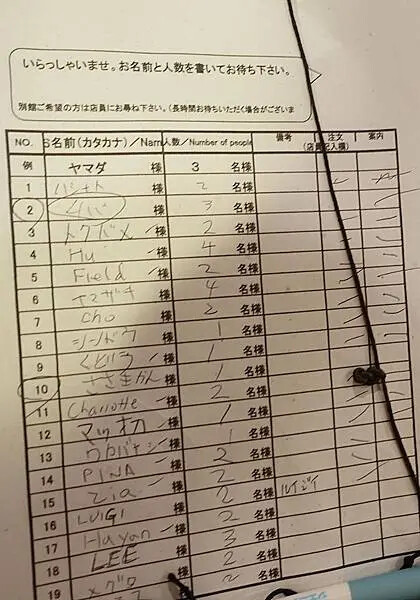 いらっしゃいませ。お名前と人数を書いてお待ち下さい。
別館ご希望の方は店員にお尋ね下さい。(長時間お待ちいただく場合がございま
NO. お名前(カタカナ)/Nam 人数/Number of people 備考 注文 案内
(店員記入欄)
例 ヤマダ 様 3 名様
1 様 2 名様
2 クバ 様 3 名様
3 トクドメ 様 2 名様
4 Hu 様 4 名様
5 Field 様 2 名様
6 ヤマザキ 様 4 名様
7 Cho 様 2 名様
8 シンドウ 様 1 名様
9 様 1 名様
10 様 1 名様
11 Charlotte 様 2 名様
12 様 1 名様
13 ワカバヤシ 様 1 名様
14 PINA 様 2 名様
15 Zia 様 2 名様
16 LUIGI 様 2 名様 ルイジイ
17 Hayan 様 2 名様
18 LEE 様 3 名様
19 様 2 名様